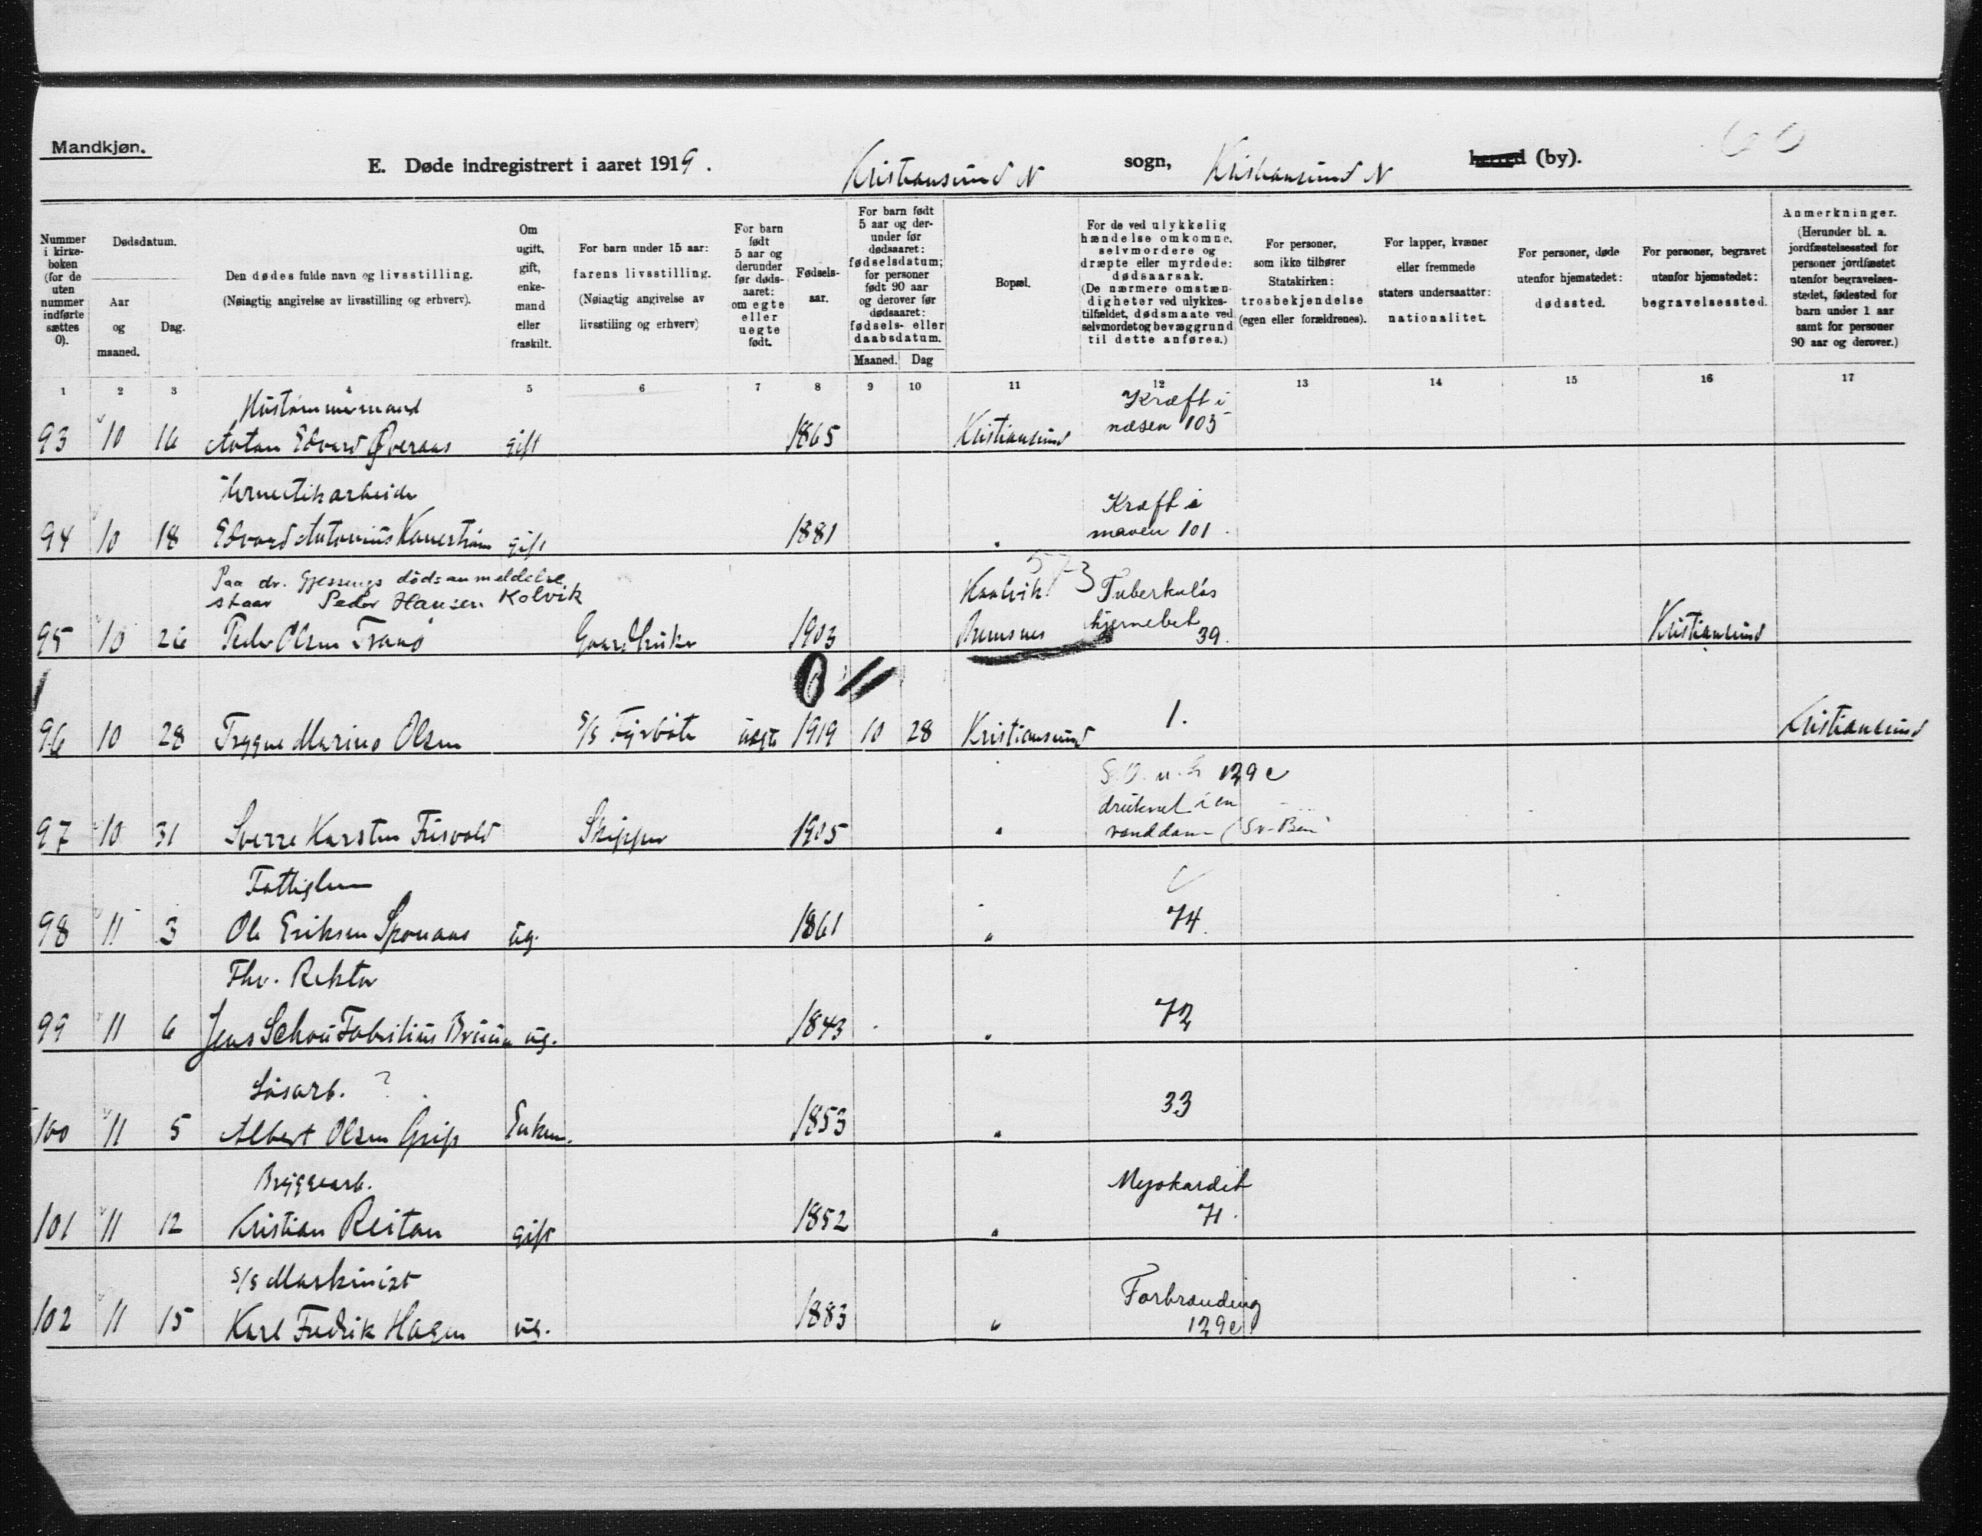 Mandkjøn.
E. Døde indregistrert i aaret 1919. Kristiansund N sogn, Kristiansund N herred (by).
Nummer i kirke-boken (for de uten nummer indførte sættes 0).
Dødsdatum.
Aar og maaned.
Dag.
Den dødes fulde navn og livsstilling.
(Nøiagtig angivelse av livsstilling og erhverv).
Om ugift, gift, enke-mand eller fraskilt.
For barn under 15 aar: farens livsstilling. (Nøiagtig angivelse av livsstiling og erhverv)
For barn født 5 aar og derunder før døds-aaret: om egte eller uegte født.
Fødsels-aar.
For barn født 5 aar og der-under før dødsaaret: fødselsdatum; for personer født 90 aar og derover før dødsaaret: fødsels- eller daabsdatum.
Maaned. Dag
Bopæl.
For de ved ulykkelig hændelse omkomne, selvmordere og dræpte eller myrdede: dødsaarsak. (De nærmere omstæn-digheter ved ulykkes-tilfældet, dødsmaate ved selvmordet og bevæggrund til dette anføres.)
For personer, som ikke tilhører Statskirken: trosbekjendelse (egen eller forældrenes).
For lapper, kvæner eller fremmede staters undersaatter: nationalitet.
For personer, døde utenfor hjemstedet: dødssted.
For personer, begravet utenfor hjemstedet: begravelsessted.
Anmerkninger. (Herunder bl. a. jordfæstelsessted for personer jordfæstet utenfor begravelses-stedet, fødested for barn under 1 aar samt for personer 90 aar og derover.)
1 2 3 4 5 6 7 8 9 10 11 12 13 14 15 16 17
Hustømmermand Kræft i
93 10 16 Anton Edvard Øveraas gift 1865 Kristiansund næsen 103
Kræft i
94 10 18 Edvard Antonius gift 1881 " maven 101.
Paa dr. Gjessings dødsanmeldelse 573
staar Peder Hansen Kolvik Kaalvik Tuberkuløs
95 10 26 Peder Olsen Gaardbruker 1903 Bremsnes hjernebet 39. Kristiansund
0 11
96 10 28 Trygve Marino Olsen s/s Fyrbøter uegte 1919 10 28 Kristiansund 1. Kristiansund
129 c
druknet i en
97 10 31 Sverre Karsten Frisvold Skipper 1905 " vanddam
Fattiglem
98 11 3 Ole Eriksen ug. 1861 " 74.
Fhv. Rektor
99 11 6 Jens Schou Fabritius Bruun ug. 1843 " 72
Løsarb. ?
100 11 5 Albert Olsen Grip Enkem. 1853 " 33
Bryggearb. Myokardit
101 11 12 Kristian Reitan gift 1852 " 71.
s/s Maskinist Forbrænding
102 11 15 Karl Fredrik Hagen ug. 1883 " 129 c